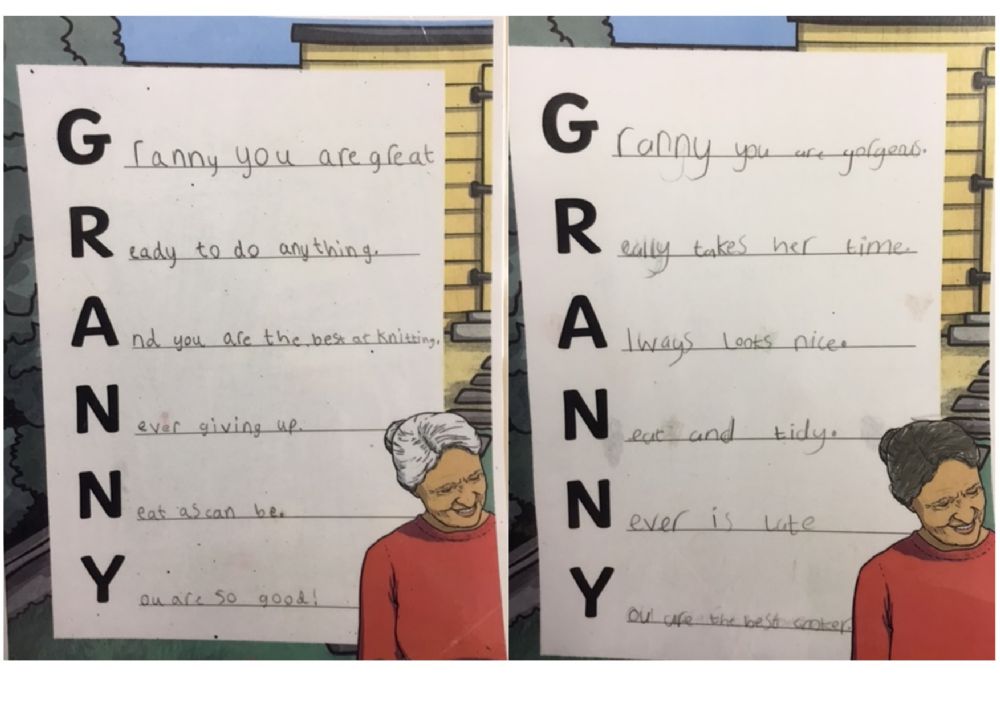 Granny you are great
Ready to do anything.
And you are the best at Knitting.
Never giving up.
Neat as can be.
You are so good!
Granny you are gorgeous.
Really takes her time.
Always looks nice.
Neat and tidy.
Never is late
You are the best cooker